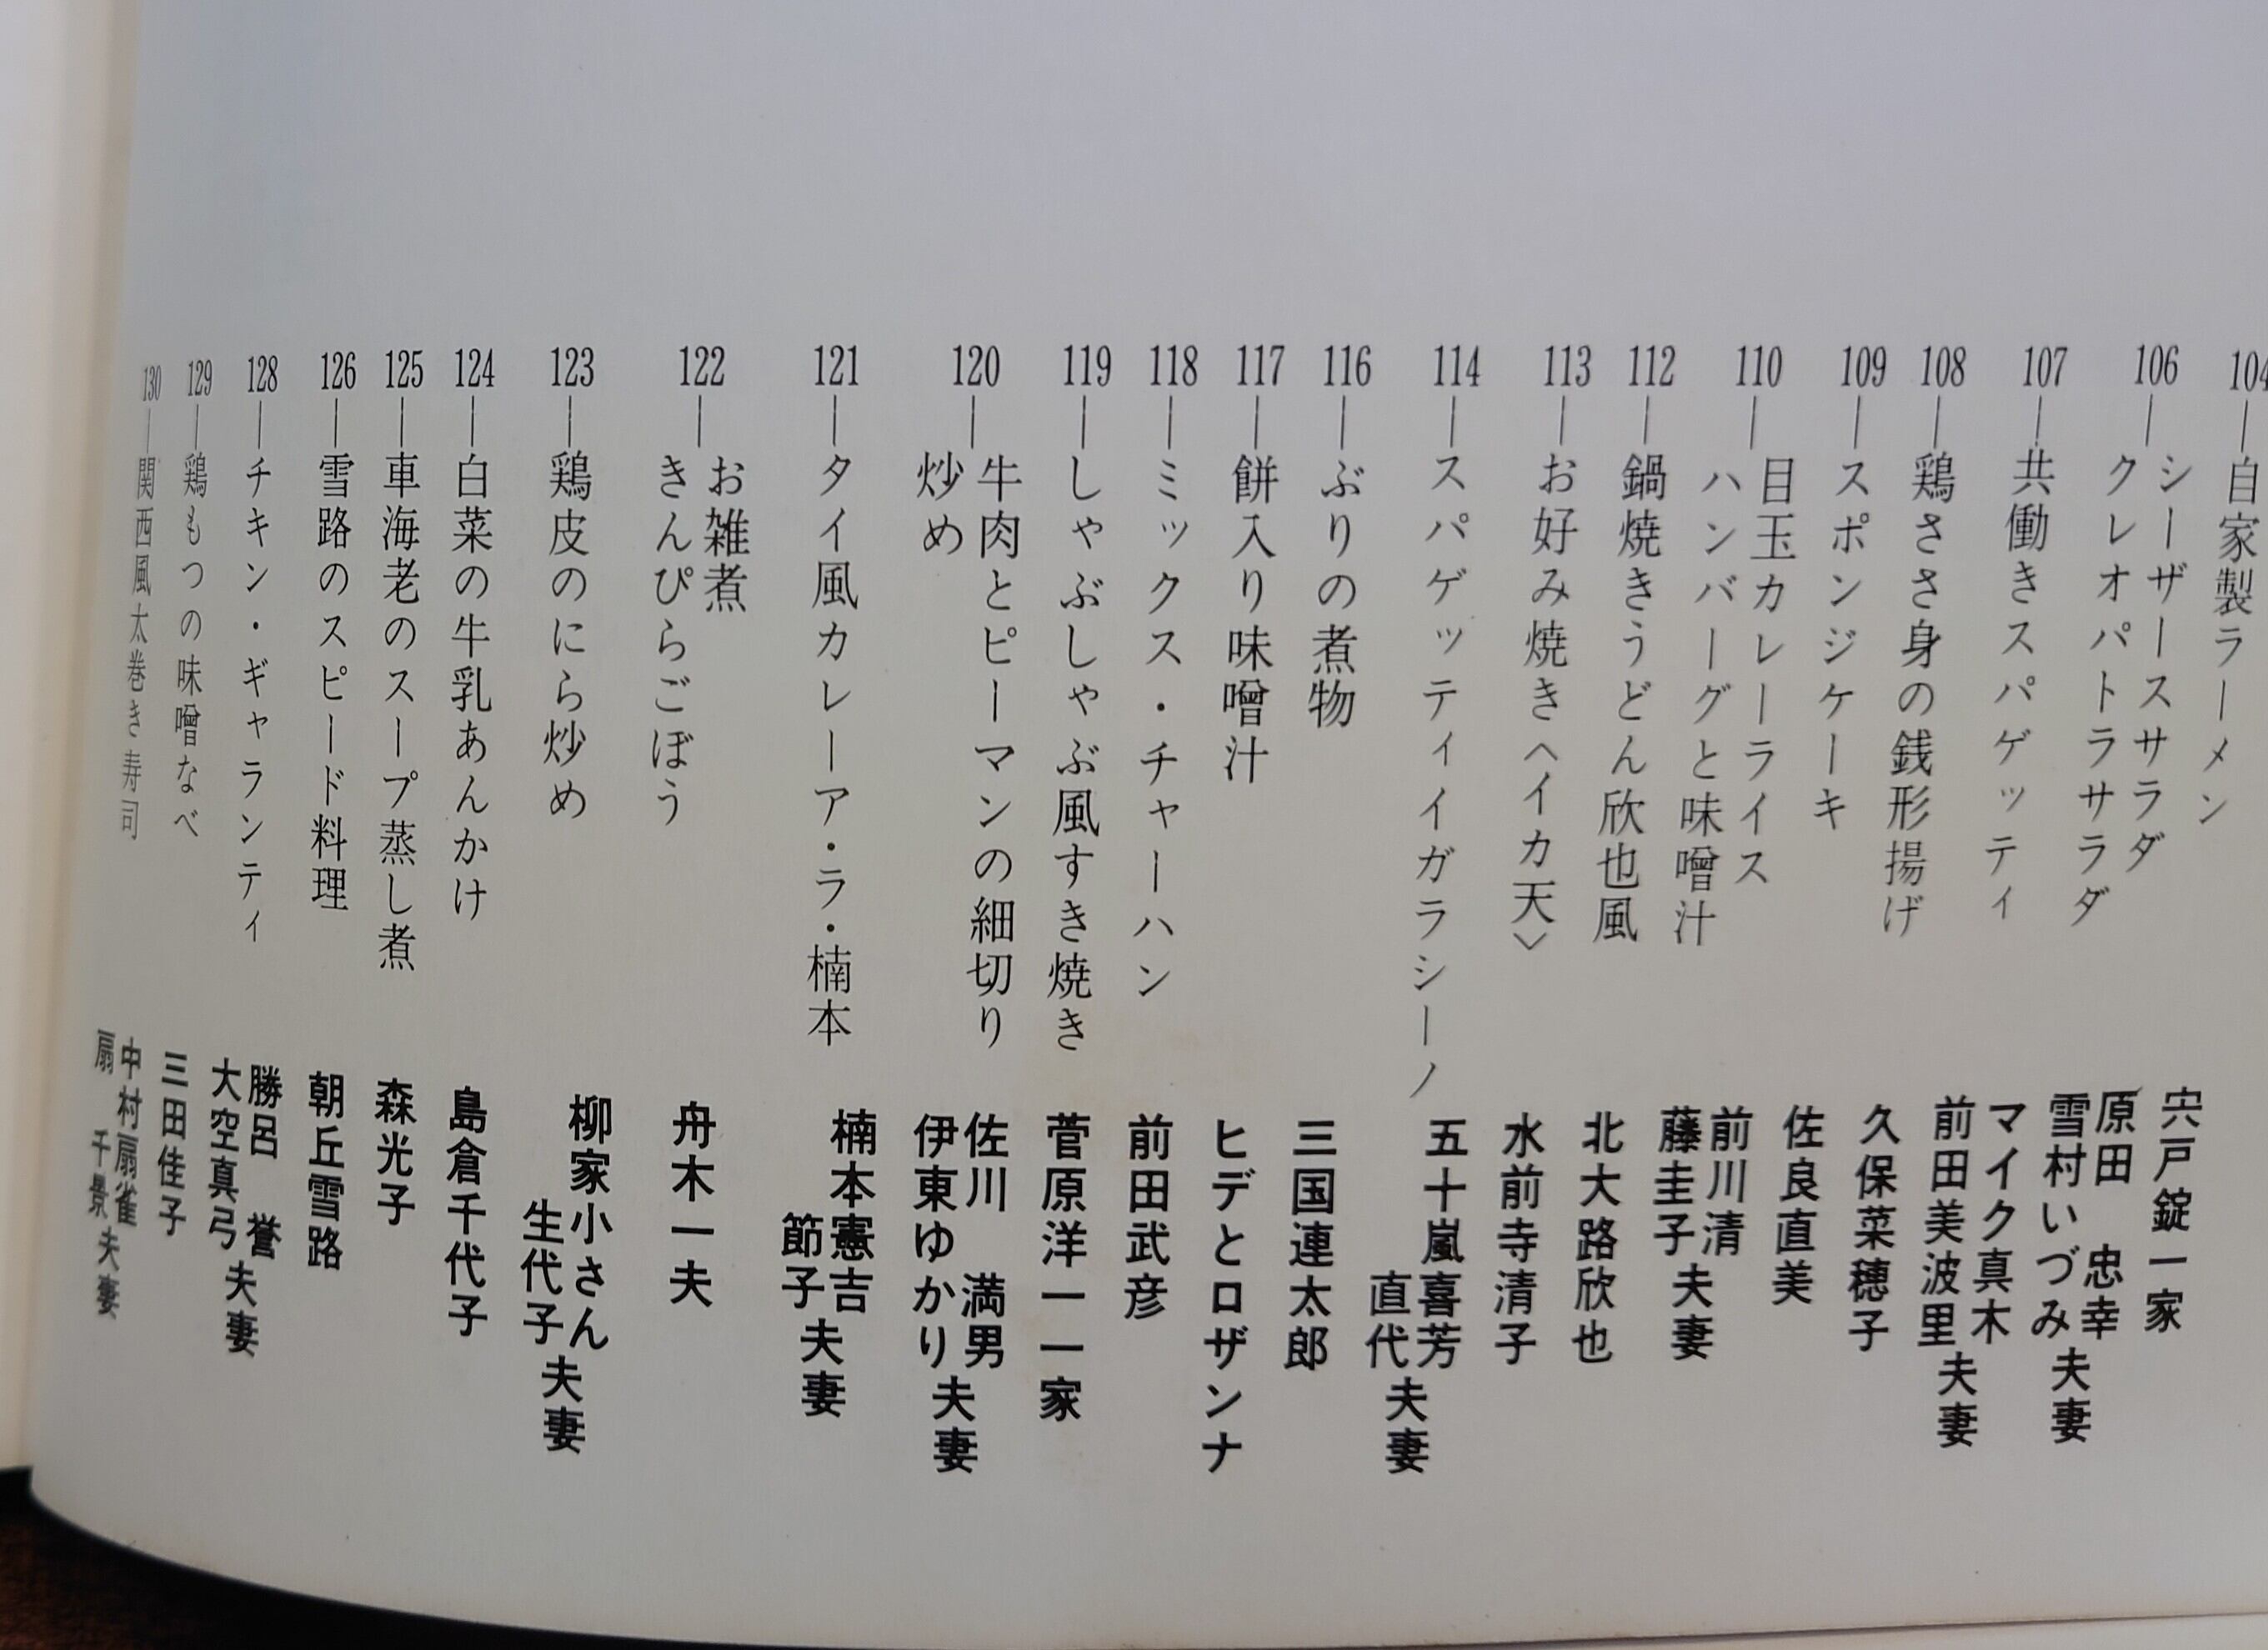 104―自家製ラーメン 宍戸錠一家
106―シーザースサラダ
クレオパトラサラダ 原田忠幸
雪村いづみ夫妻
107―共働きスパゲッティ マイク真木
前田美波里夫妻
108―鶏ささ身の銭形揚げ 久保菜穂子
109―スポンジケーキ 佐良直美
110―目玉カレーライス
ハンバーグと味噌汁 前川清
藤圭子夫妻
112―鍋焼きうどん欣也風 北大路欣也
113―お好み焼き〈イカ天〉 水前寺清子
114―スパゲッティイガラシーノ 五十嵐喜芳
直代夫妻
116―ぶりの煮物 三国連太郎
117―餅入り味噌汁 ヒデとロザンナ
118―ミックス・チャーハン 前田武彦
119―しゃぶしゃぶ風すき焼き 菅原洋一一家
120―牛肉とピーマンの細切り
炒め 佐川満男
伊東ゆかり夫妻
121―タイ風カレーア・ラ・楠本 楠本憲吉
節子夫妻
122―お雑煮
きんぴらごぼう 舟木一夫
123―鶏皮のにら炒め 柳家小さん
生代子夫妻
124―白菜の牛乳あんかけ 島倉千代子
125―車海老のスープ蒸し煮 森光子
126―雪路のスピード料理 朝丘雪路
128―チキン・ギャランティ 勝呂誉
大空真弓夫妻
129―鶏もつの味噌なべ 三田佳子
130―関西風太巻き寿司 中村扇雀
扇千景夫妻